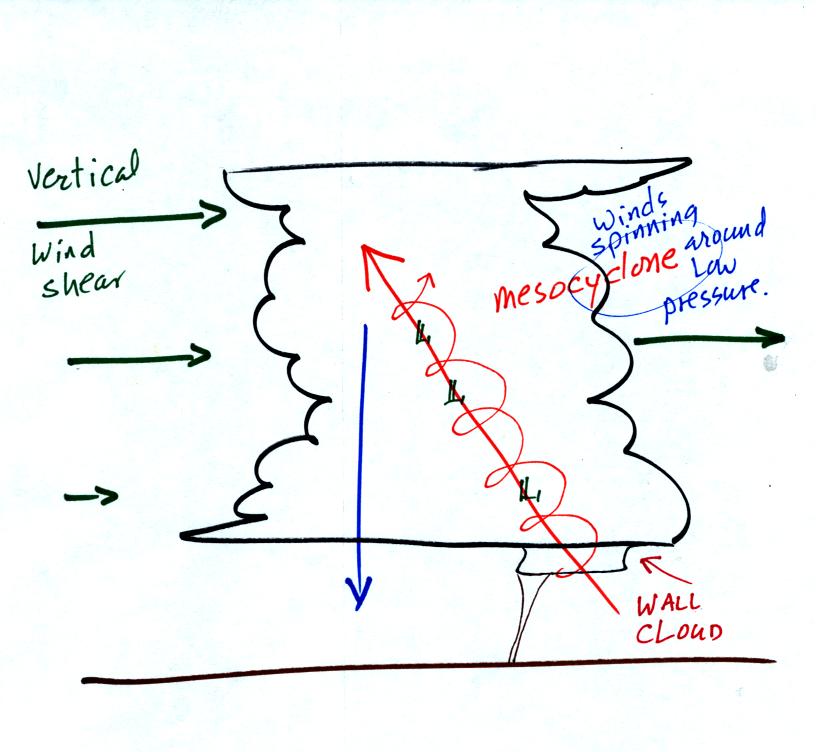 Vertical
Wind
shear
Winds
spinning
around
Low
pressure.
mesocyclone
L
L
L
WALL
CLOUD